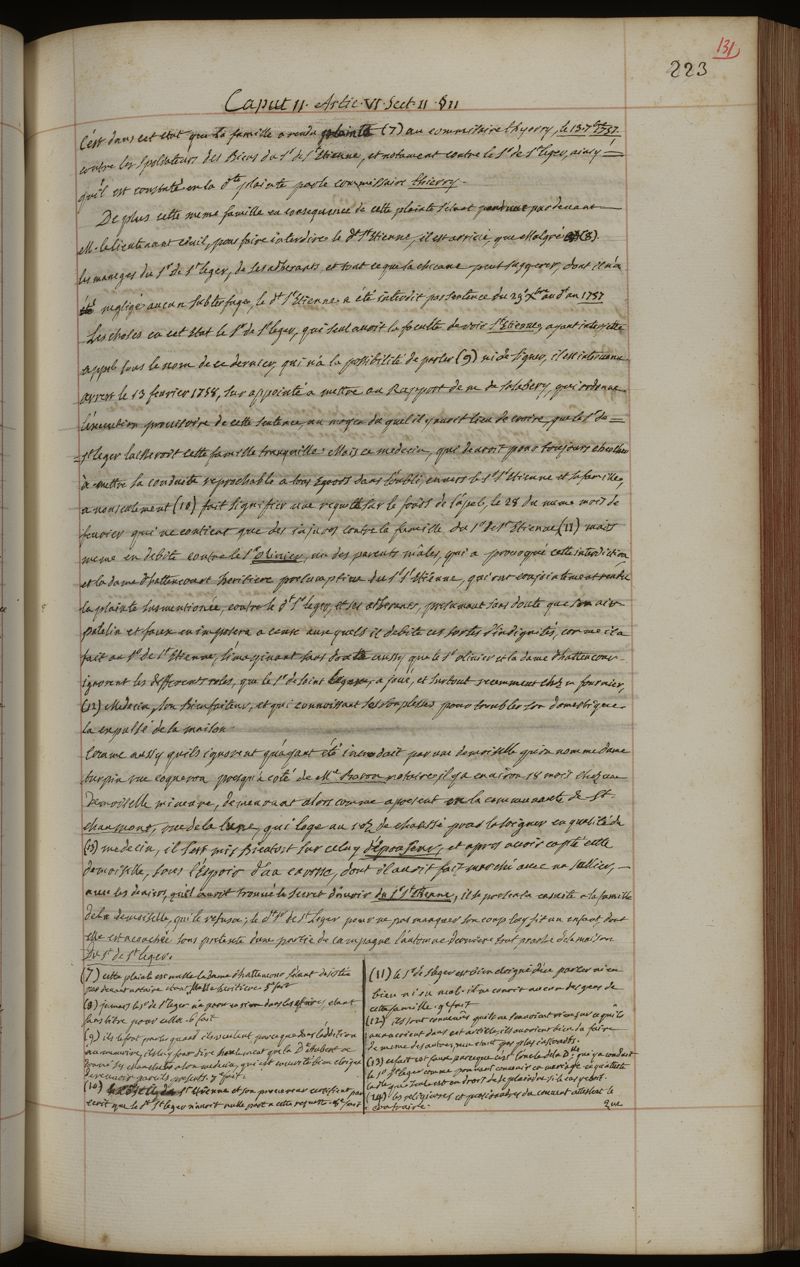 131
223
Caput II. Artic. VI. Sect. II. §II
C'est dans cet etat que la famille a rendu plainte (7) au commissaire thyerry, le 13. 7bre 1737.
contre les spoliateurs des Biens du Sr. de St. Etienne, et notament contre le Sr. de St. leger, ainsy
qu'il est constaté en la dte plainte par le commissaire thierry.
De plus cette meme famille en consequence de cette plainte s'etant pardevant
M. le lieutenant civil, pour faire interdire le dt. St. Etienne, il est arrivé que Malgré (8)
les maneges du Sr. De St. leger, de ses adherants, et tout ce que la chicane peut suggerer, dont il n'a
negligé aucun subterfuge, le dt. St. Etienne a été interdit par sentence du 29e Xbre au dt an 1737
Les choses en cet etat le Sr. de St. leger, qui seul avoit la faculté de voir St. Etienne, ayant interjetté
appel sous le nom de ce dernier, qui n'a la possibilité de parler (9) ni de signer, il est intervenu
arrest le 13 fevrier 1738, sur appointé a mettre au Rapport de me. de Salabery, qui ordonne
l'execution provisoire de cette sentence, au moyen du quel il y auroit lieu de croire, que le Sr. de
St. leger laisseroit cette famille tranquille. Mais ce medecin, qui devroit pour toujours chercher
à mettre la conduite reprochable a tous Egards dans l'oubli, envers le Sr. St. Etienne et sa famille,
a non seulement (10) fait signifier une requette sur le fonds de l'apel, le 28 du meme mois de
fevrier qui ne contient que des injures contre la famille du Sr. de St. Etienne (11) mais
meme en debite contre le Sr. olivier, un des parents mâles, qui a provoqué cette interdiction
et la dame d'hattencourt heritiere presumptive du Sr. St. Etienne, qui ont conjointement rendu
la plainte susmentionée, contre le dt. St. leger, et ses adherants, presumant sans doute que son air
patelin et faux en imposera a ceux aux quels il debite ces sortes d'indignités, comme il a
fait au Sr. de St. Etienne, s'imaginant sans doute aussy que le Sr. olivier et la dame d'hattencour
ignorent les differents roles, que le Sr. de Saint leger, a joué, et surtout recemment chez un fournier,
(12) Medecin, son Bienfaiteur, et qui connoissant ses souplesses pour troubler son domestique
l'a expulsé de sa maison.
Comme aussy qu'ils ignorent qu'ayant été introduit par une demoiselle qu'on nomme dame
turpin rue coqueron presqu'à coté de Me. Baron notaire, il y a environ 18 mois chez une
Demoiselle mineure, demeurant alors comme a present en la communauté de St.
chaumont, rue de la lune, qui loge au rez de chaussé pour la soigner en qualité de
(13) medecin, il s'est mis Bientost sur celuy d'Epouseur, et apres avoir capté cette
demoiselle, sous l'espoir d'un carosse, dont il avoit fait marché avec un sellier,
avec les deniers, qu'il auroit trouvé le secret d'avoir du Sr. St. Etienne, il se presenta ensuite a la famille
de la demoiselle, qui le refusa; le dt. Sr. de St. Leger pour ne pas manquer son coup luy fit un enfant, dont
elle est acouchée sous pretexte d'une partie de campagne l'automne derniere tout proche de la maison
du Sr. de St. leger.
(7) cette plainte est nulle la dame d'hattencour s'étant desistée
par devant notaire heritiere. 5e fait
(8) jamais le Sr. de St. leger n'a pour les affaires, etant
sans titre pour cella. 6 fait
(9) ils le font parler quand ils veulent
(10) St. Etienne et son procureur certifient par
ecrit que le Sr. St. leger n'avoit nulle part a cette requette. 8e fait
(11) le Sr. de St. leger est bien eloigné d'en parler ni en
bien ni en mal. il ne connoit aucun des gens de
cette famille. 9 fait
(12) ils sont convaincus qu'ils ne scavoient rien sur ce qu'ils
ont avancé dans cet article, ils auroient bien la faire
de meme des autres, n'en etant pas plus instruits.
(13) ce fait est faux parce que c'est l'oncle de la Dlle. qui y a conduit
le Sr. St. leger comme pouvant convenir en mariage ce qu'atteste
(14) les religieuses et pensionaires du couvent attestent le
contraire.
que